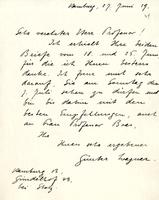 Hamburg, 27. Juni 19.
Sehr verehrter Herr Professor!
Ich erhielt Ihre beiden
Briefe vom 18. und 25. Juni
für die ich Ihnen bestens
danke. Ich freue mich sehr
darauf, Sie am Sonntag den
7. Juli sehen zu dürfen und
bin bis dahin mit den
besten Empfehlungen, auch
an Frau Professor Boas,
Ihr
Ihnen sehr ergebener
Günter Wagner.
Hamburg
bei